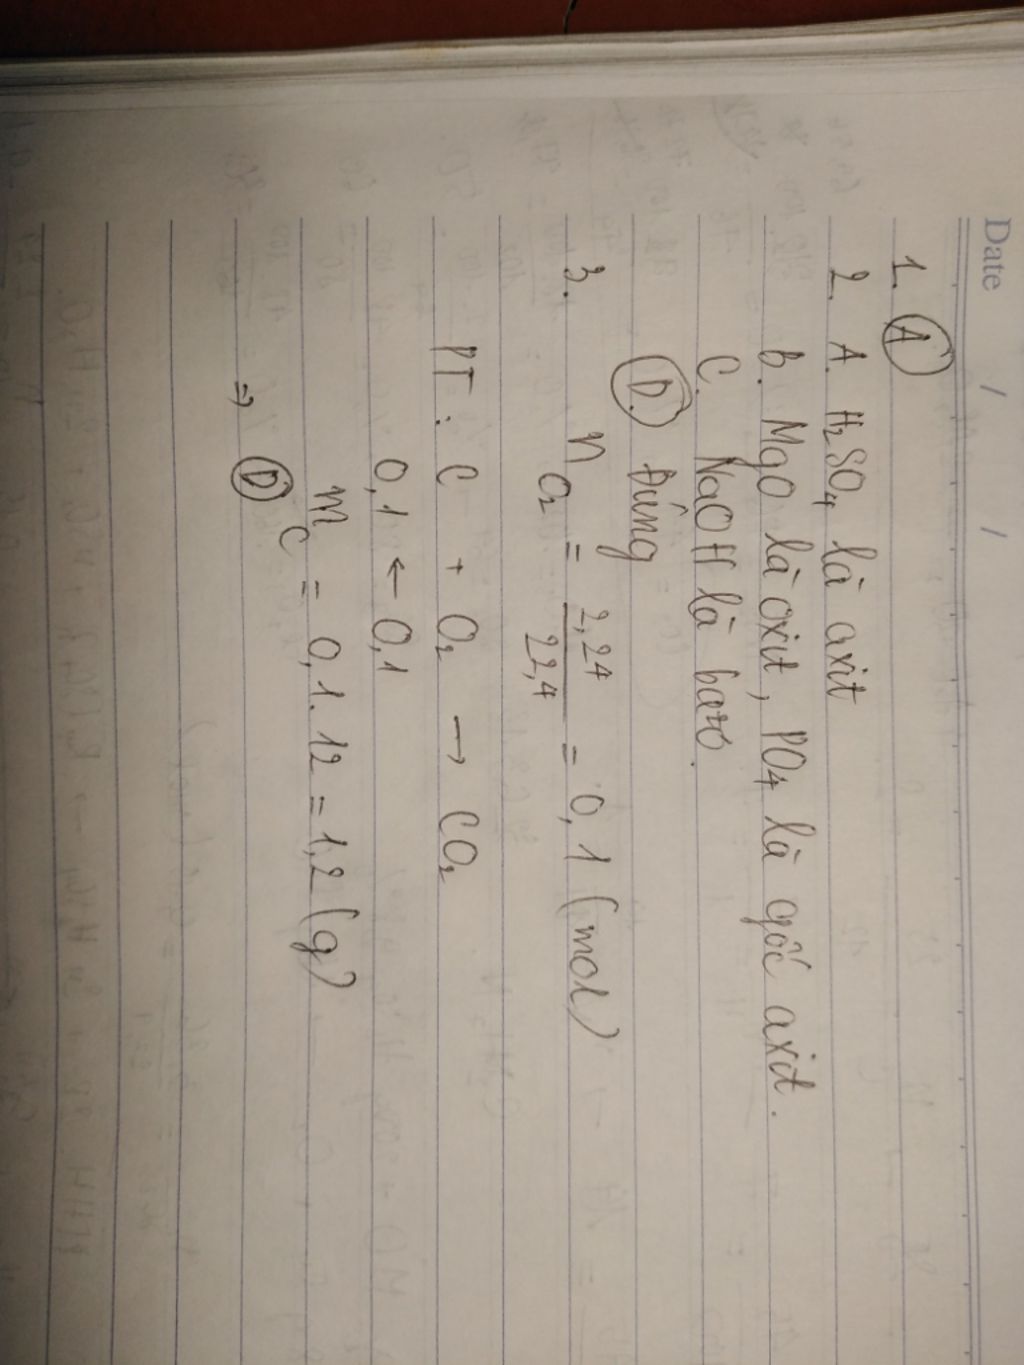 Date / /
1. A
2. A. H₂SO₄ là axit
B. MgO là oxit, PO₄ là gốc axit.
C. NaOH là bazơ.
D. Đúng
3. n O₂ = 2,24 / 22,4 = 0,1 (mol)
PT: C + O₂ → CO₂
0,1 ← 0,1
m C = 0,1.12 = 1,2 (g)
⇒ D